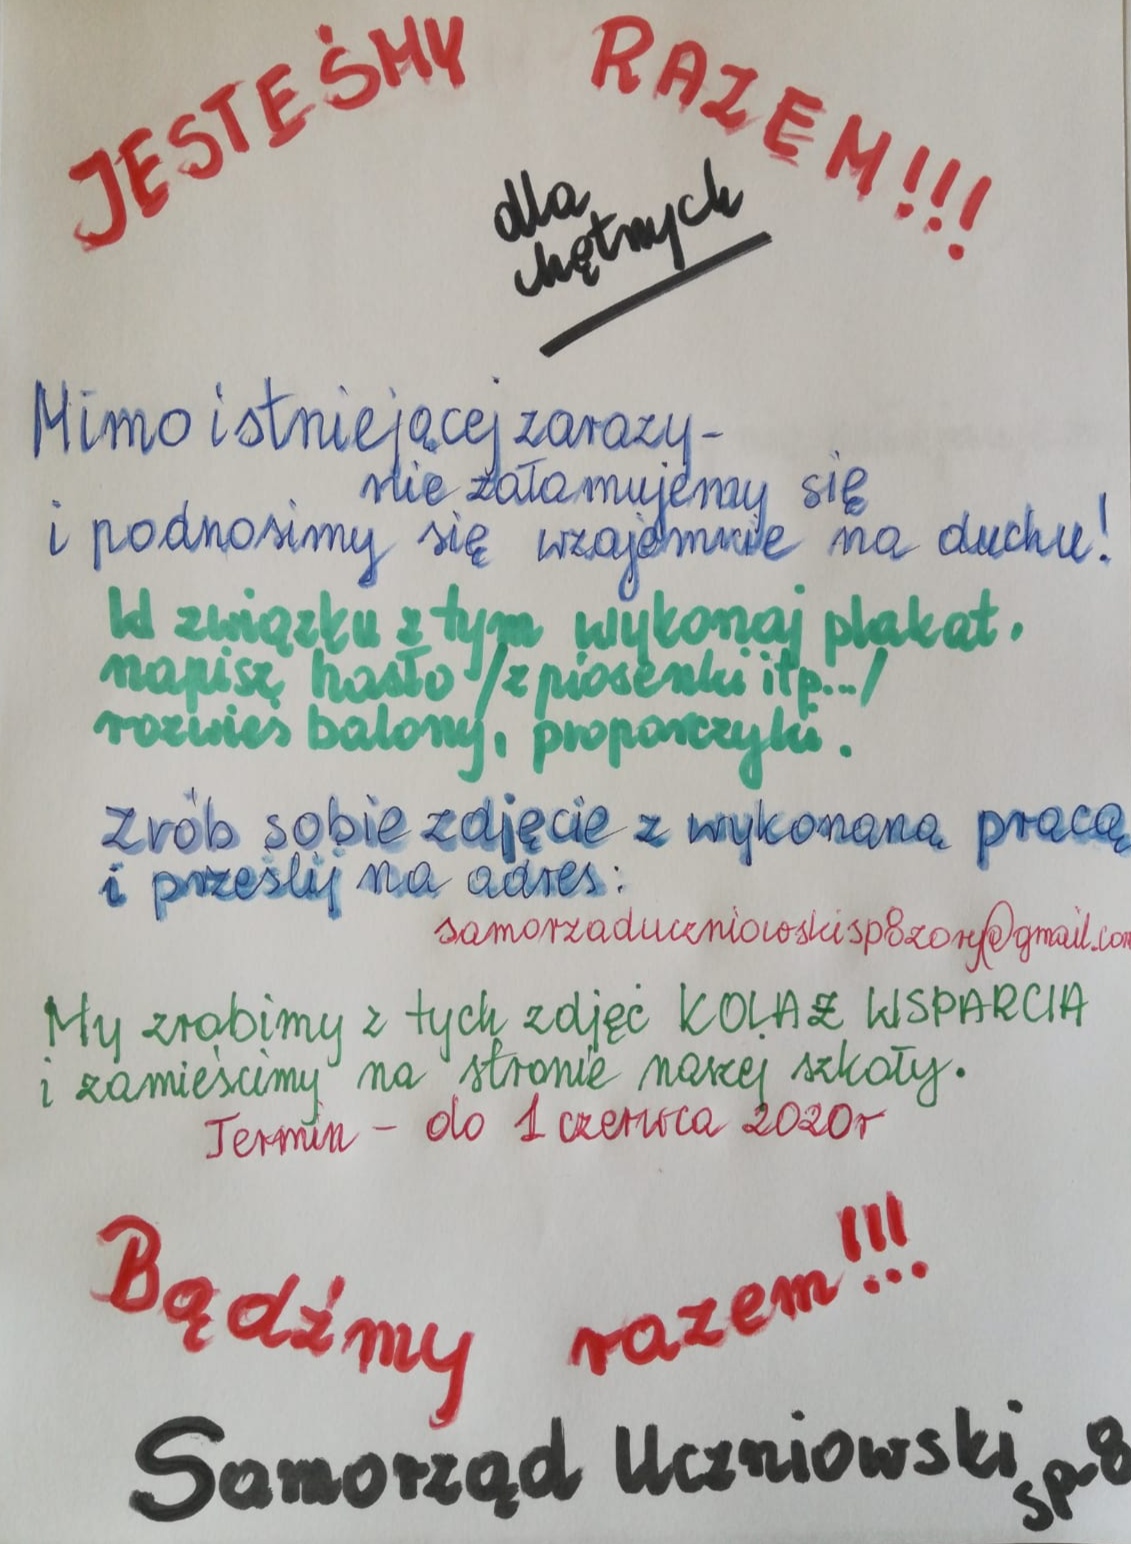 JESTEŚMY RAZEM!!!
dla
chętnych
Mimo istniejącej zarazy-
nie załamujemy się
i podnosimy się wzajemnie na duchu!
W związku z tym wykonaj plakat,
napisz hasło /z piosenki itp.../
rozwieś balony, proporczyki.
Zrób sobie zdjęcie z wykonaną pracą
i prześlij na adres:
samorzaduczniowskisp8zory@gmail.com
My zrobimy z tych zdjęć KOLAŻ WSPARCIA
i zamieścimy na stronie naszej szkoły.
Termin - do 1 czerwca 2020r
Bądźmy razem!!!
Samorząd Uczniowski
sp-8